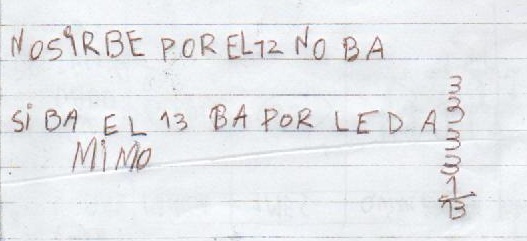 NOSIRBE POR EL 12 NO BA
SI BA EL 13 BA POR LE D A
MIMO
3
3
3
3
1
13